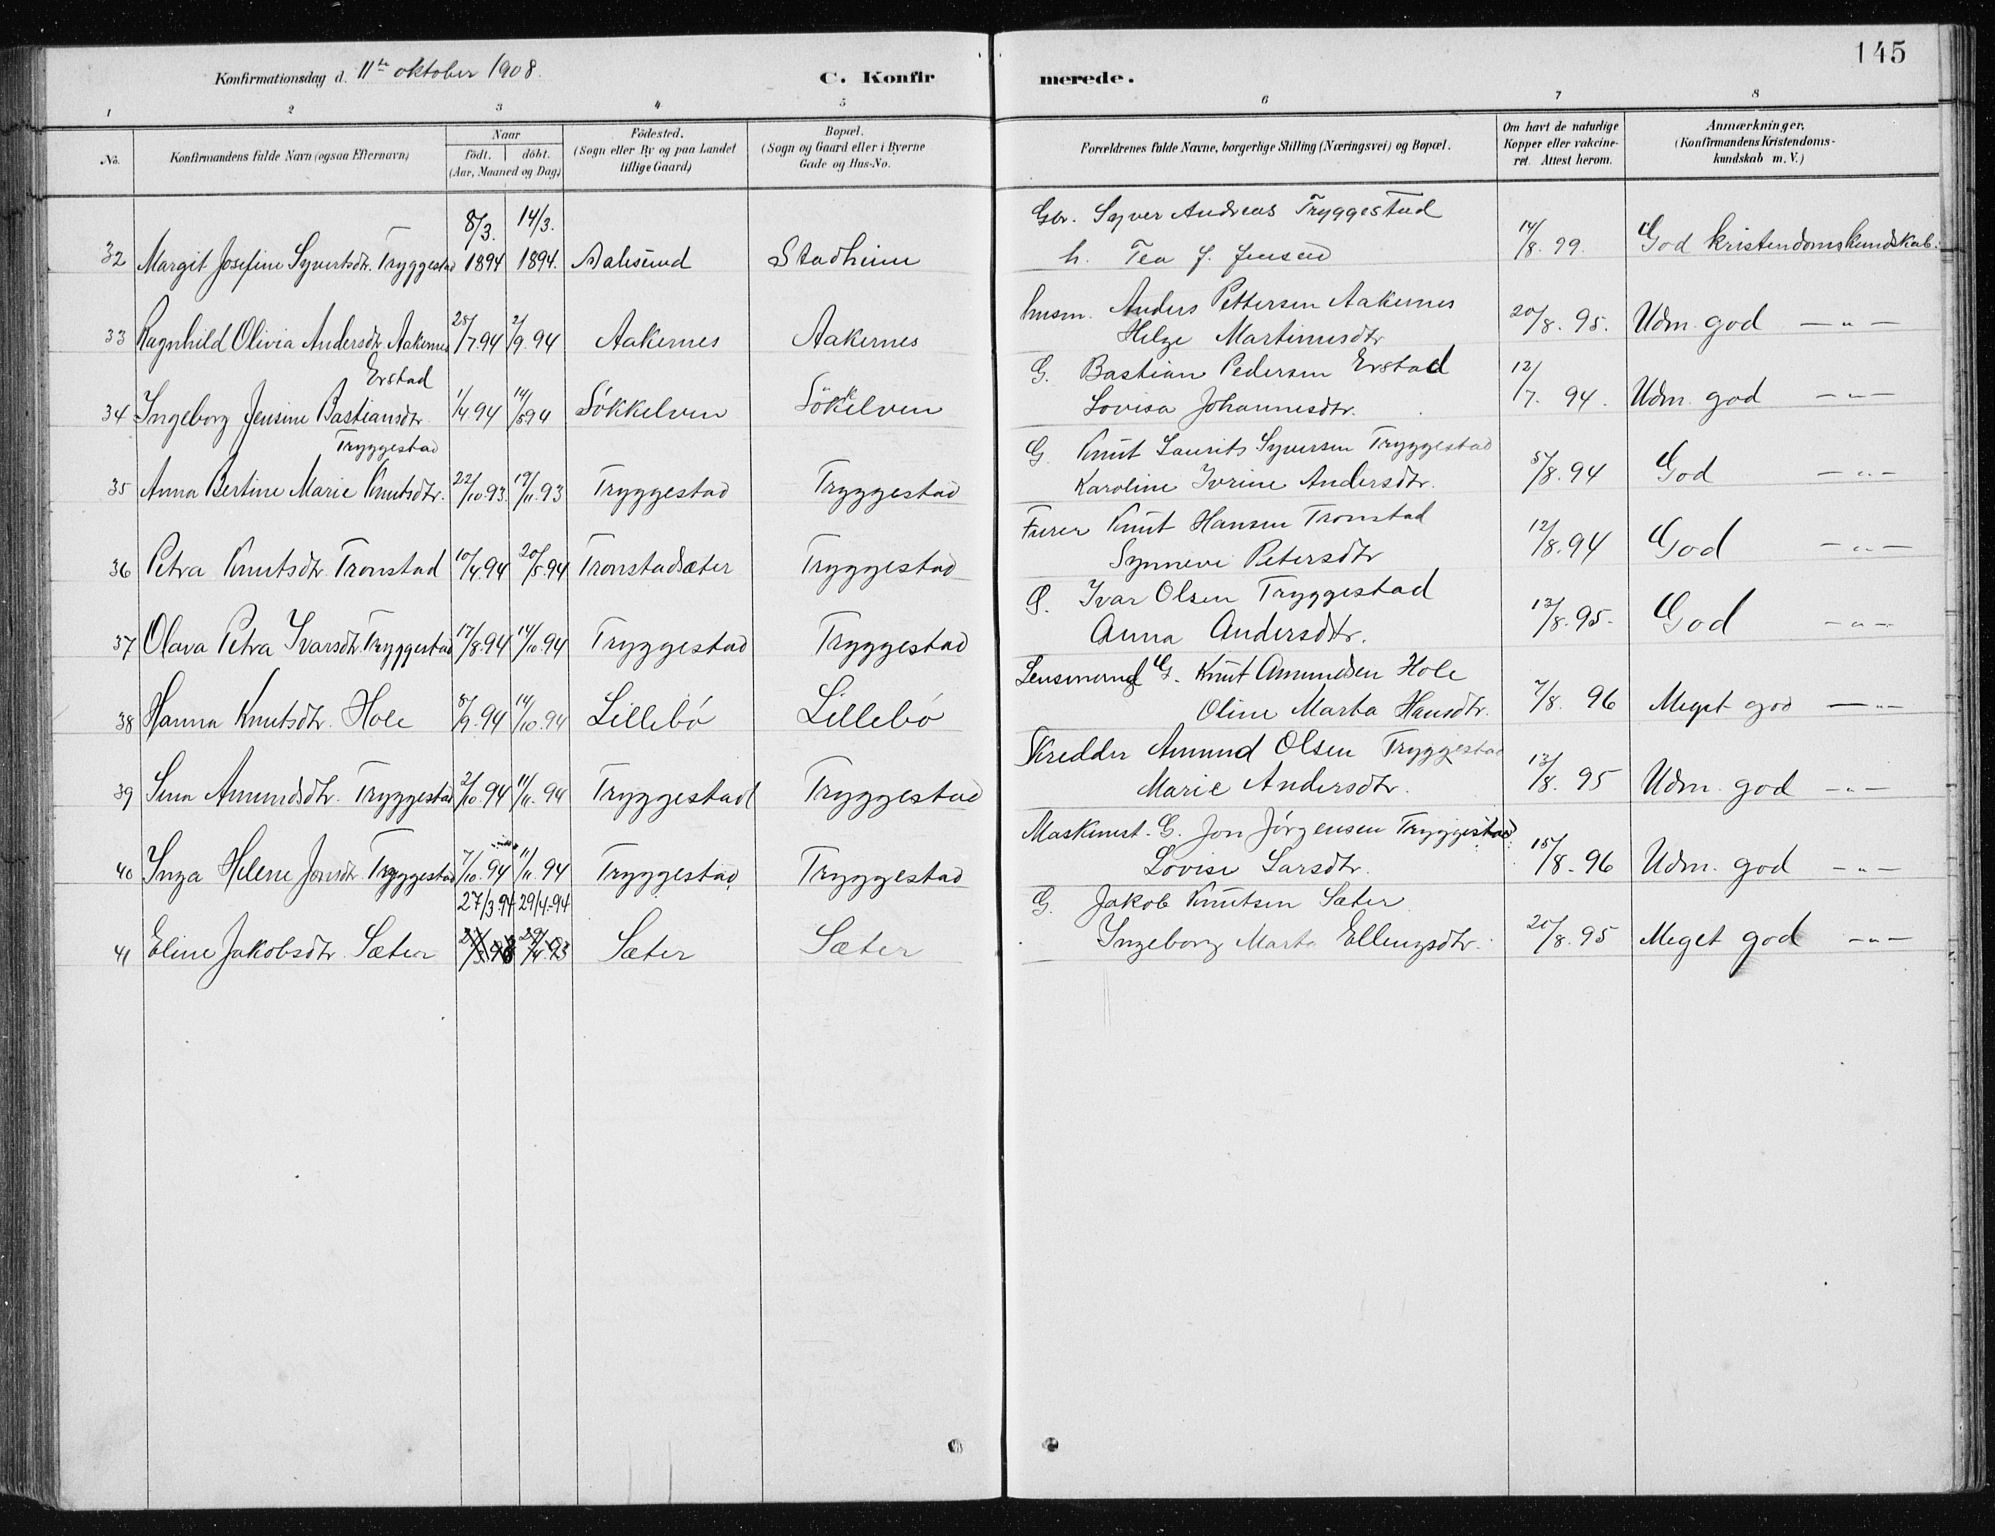 145
Konfirmationsdag d. 11te oktober 1908.
C. Konfirmerede.
1 2 3 4 5 6 7 8
No.
Konfirmandens fulde Navn (ogsaa Efternavn)
Naar
født. døbt.
(Aar, Maaned og Dag)
Födested.
(Sogn eller By og paa Landet
tillige Gaard)
Bopæl.
(Sogn og Gaard eller i Byerne
Gade og Hus-No.
Forældrenes fulde Navne, borgerlige Stilling (Næringsvei) og Bopæl.
Om havt de naturlige
Kopper eller vakcine-
ret. Attest herom.
Anmærkninger.
(Konfirmandens Kristendoms-
kundskab m. V.)
8/3. 14/3. Gbr. Syver Andreas Tryggestad
32 Margit Josefine Syvertsdtr. Tryggestad 1894 1894. Aalesund Stadheim h. Tea J. Jensen 14/8. 99. God kristendomskundskab.
husm. Anders Pettersen Aakernes
33 Ragnhild Olivia Andersdtr. Aakernes 28/7.94 2/9.94 Aakernes Aakernes Helge Martinusdtr 20/8. 95. Udm. god —"—
Erstad G. Bastian Pedersen Erstad
34 Ingeborg Jensine Bastiansdtr. 1/4.94 14/5 94 Søkkelven Søkkelven Lovisa Johannesdtr. 12/7. 94. Udm. god —"—
Tryggestad G. Knut Laurits Syversen Tryggestad
35 Anna Bertine Marie Knutsdtr. 22/10.93. 19/11.93 Tryggestad Tryggestad Karoline Ivrine Andersdtr. 5/8.94 God —"—
Furer Knut Hansen Tronstad
36 Petra Knutsdtr. Tronstad 10/4.94 20/5.94 Tronstadsæter Tryggestad Synneve Petersdtr 12/8.94 God —"—
G. Ivar Olsen Tryggestad
37 Olava Petra Ivarsdtr. Tryggestad 17/8.94 14/10.94 Tryggestad Tryggestad Anna Andersdtr. 13/8.95. God —"—
Lensmand G. Knut Amundsen Hole
38 Hanna Knutsdtr. Hole 8/9.94 14/10.94 Lillebø Lillebø Oline Marta Hansdtr. 7/8. 96 Meget god —"—
Skredder Amund Olsen Tryggestad
39 Sina Amundsdtr. Tryggestad 2/10.94 11/11.94 Tryggestad Tryggestad Marie Andersdtr. 13/8. 95 Udm. god —"—
Maskinist. G. Jon Jørgensen Tryggestad
40 Inga Helene Jonsdtr. Tryggestad 7/10.94 11/11.94 Tryggestad Tryggestad Lovise Larsdtr. 15/8.96 Udm. god —"—
27/3.94 29/4.-94 G. Jakob Knutsen Sæter
41 Eline Jakobsdtr. Sæter 27/3.93 29/4.93 Sæter Sæter Ingeborg Marta Ellengsdtr. 20/8.95 Meget god —"—